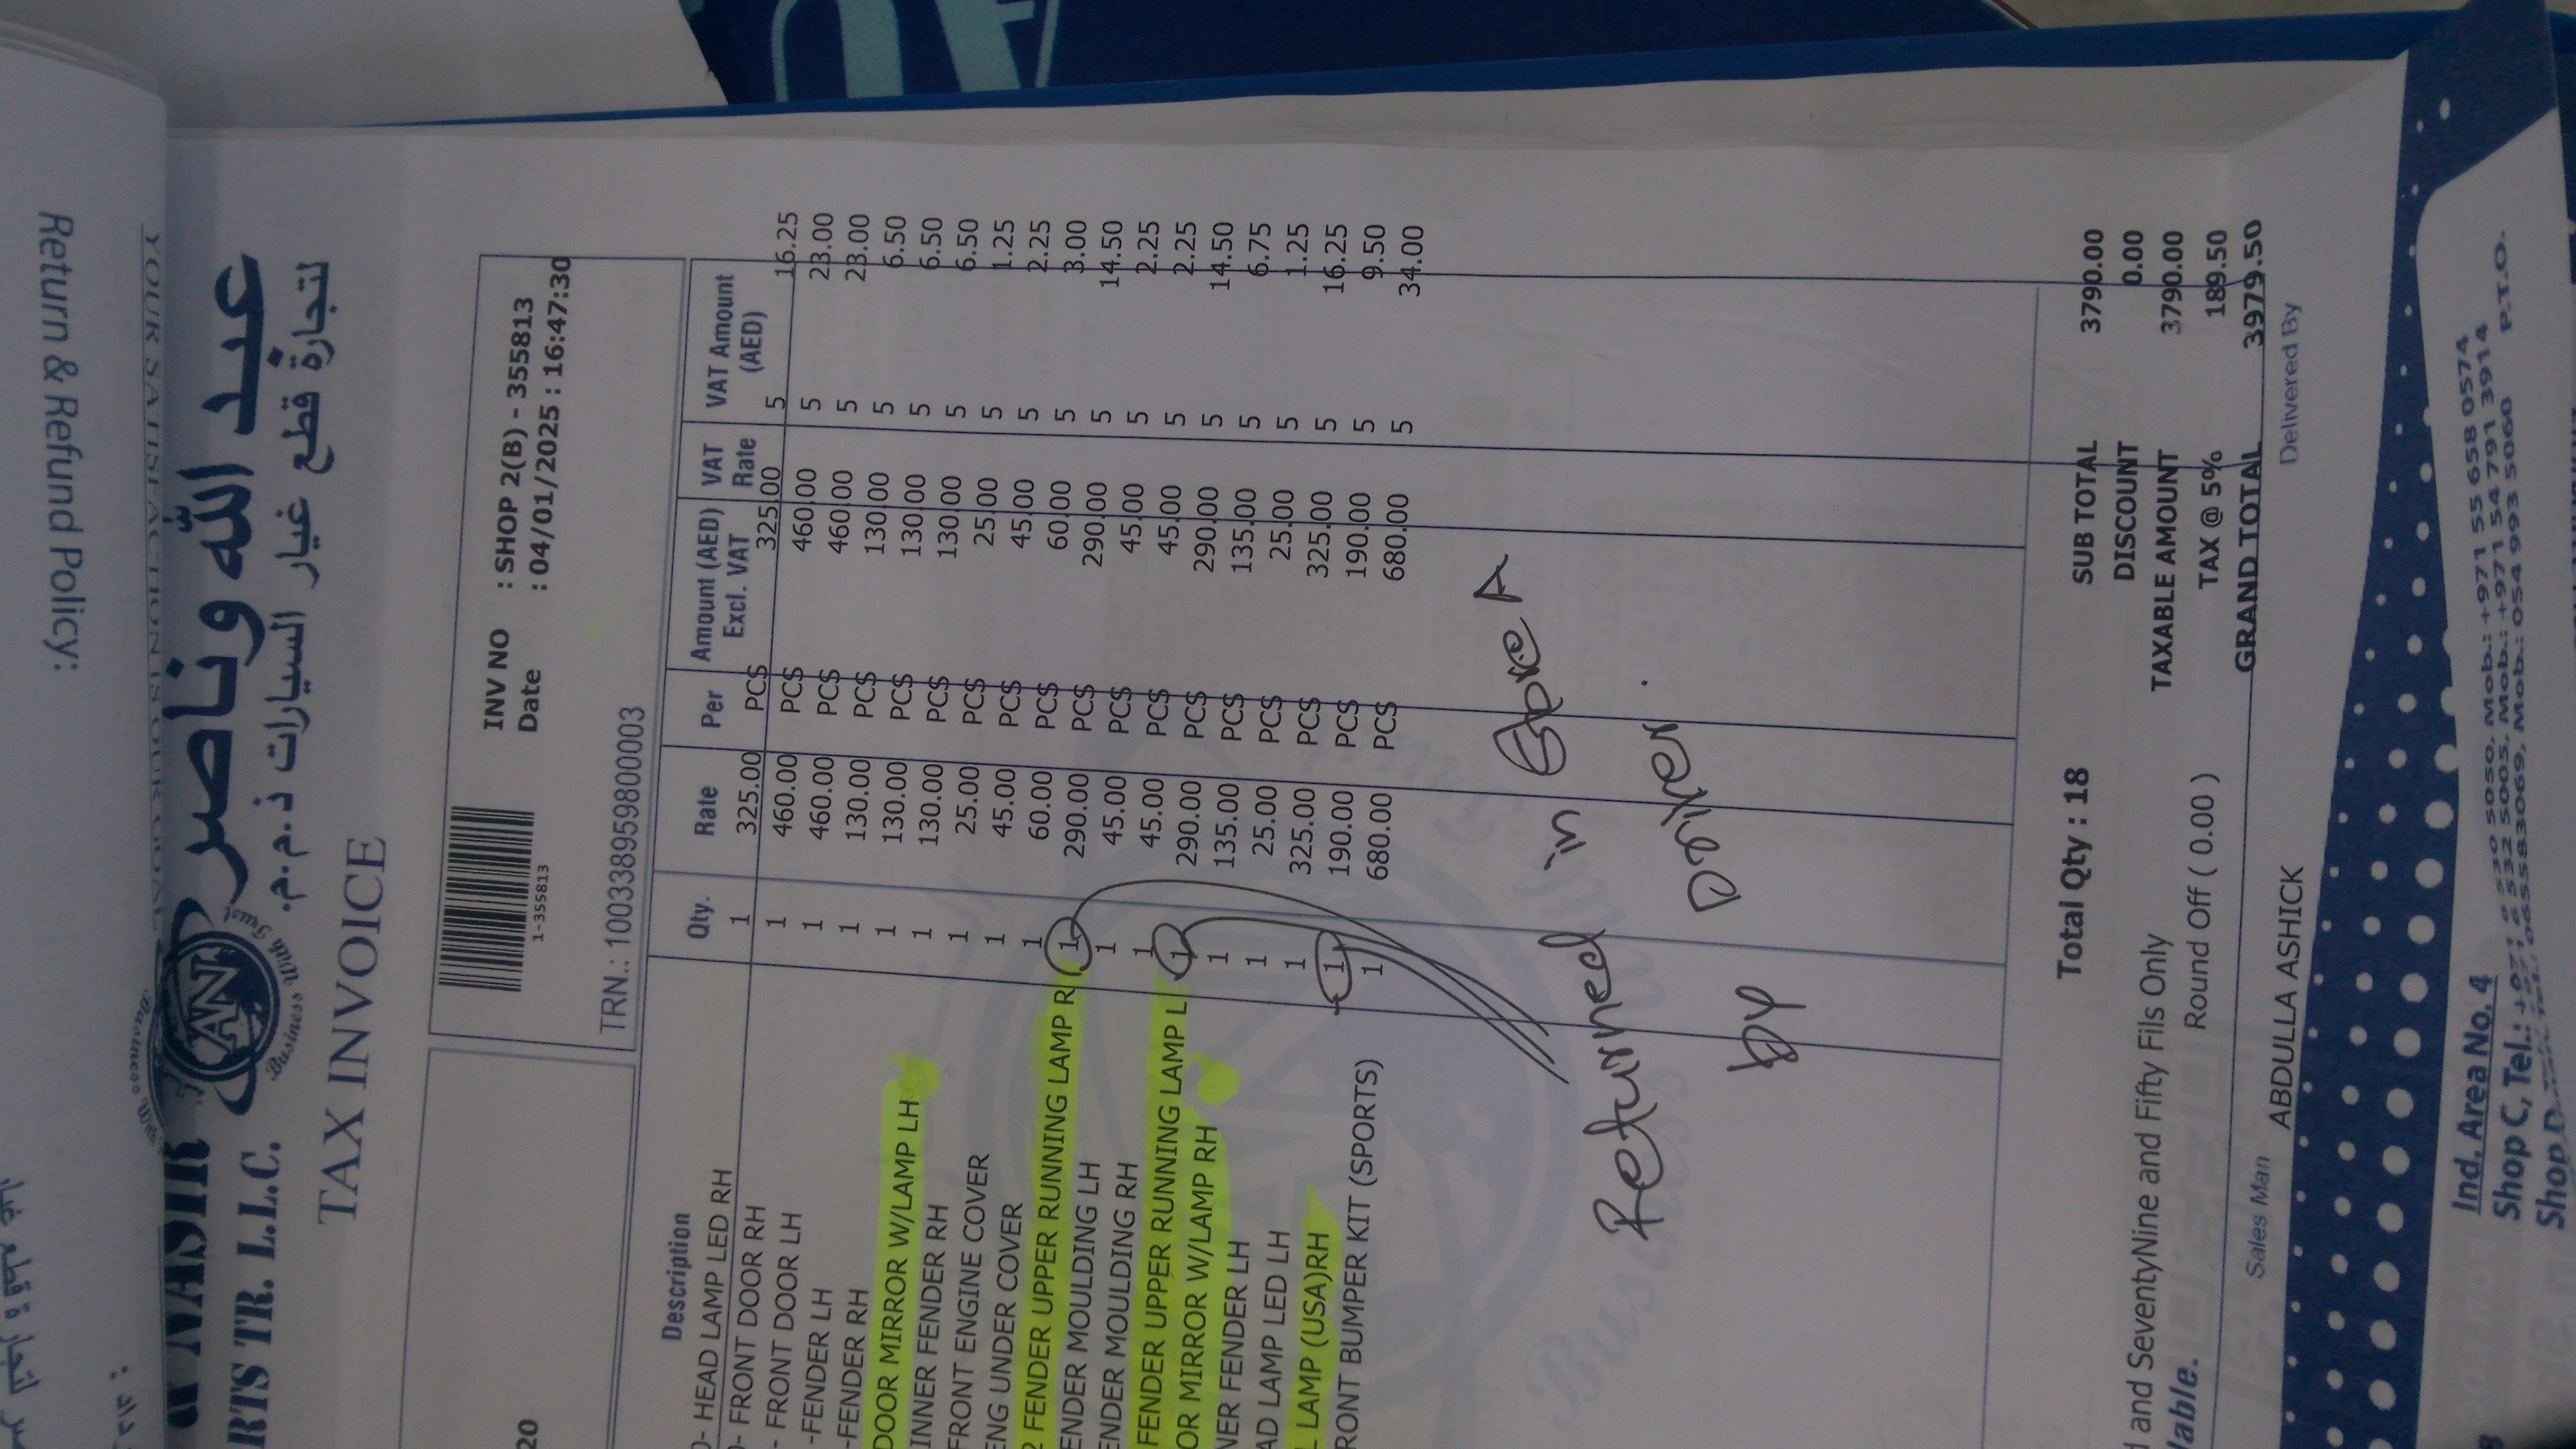 Return & Refund Policy:
YOUR SATISFACTION IS OUR GOAL
عبد الله وناصر
لتجارة قطع غيار السيارات ذ.م.م.
& NASIR
RTS TR. L.L.C.
AN
Business With Trust
TAX INVOICE
1-355813
INV NO : SHOP 2(B) - 355813
Date : 04/01/2025 : 16:47:30
TRN.: 100338959800003
20
Description Qty. Rate Per Amount (AED) Excl. VAT VAT Rate VAT Amount (AED)
- HEAD LAMP LED RH 1 325.00 PCS 325.00 5 16.25
- FRONT DOOR RH 1 460.00 PCS 460.00 5 23.00
- FRONT DOOR LH 1 460.00 PCS 460.00 5 23.00
-FENDER LH 1 130.00 PCS 130.00 5 6.50
-FENDER RH 1 130.00 PCS 130.00 5 6.50
DOOR MIRROR W/LAMP LH 1 130.00 PCS 130.00 5 6.50
INNER FENDER RH 1 25.00 PCS 25.00 5 1.25
FRONT ENGINE COVER 1 45.00 PCS 45.00 5 2.25
ENG UNDER COVER 1 60.00 PCS 60.00 5 3.00
FENDER UPPER RUNNING LAMP R 1 290.00 PCS 290.00 5 14.50
ENDER MOULDING LH 1 45.00 PCS 45.00 5 2.25
ENDER MOULDING RH 1 45.00 PCS 45.00 5 2.25
FENDER UPPER RUNNING LAMP L 1 290.00 PCS 290.00 5 14.50
OR MIRROR W/LAMP RH 1 135.00 PCS 135.00 5 6.75
NER FENDER LH 1 25.00 PCS 25.00 5 1.25
AD LAMP LED LH 1 325.00 PCS 325.00 5 16.25
L LAMP (USA)RH 1 190.00 PCS 190.00 5 9.50
RONT BUMPER KIT (SPORTS) 1 680.00 PCS 680.00 5 34.00
Returned in Store A
by Driver.
Total Qty : 18
SUB TOTAL 3790.00
DISCOUNT 0.00
and SeventyNine and Fifty Fils Only TAXABLE AMOUNT 3790.00
Round Off ( 0.00 ) TAX @ 5% 189.50
GRAND TOTAL 3979.50
Sales Man ABDULLA ASHICK Delivered By
Ind. Area No. 4
Shop C, Tel.: Mob.: +971 55 658 0574
Mob.: +971 54 791 3914
Mob.: 054 993 5060 P.T.O.
Shop D